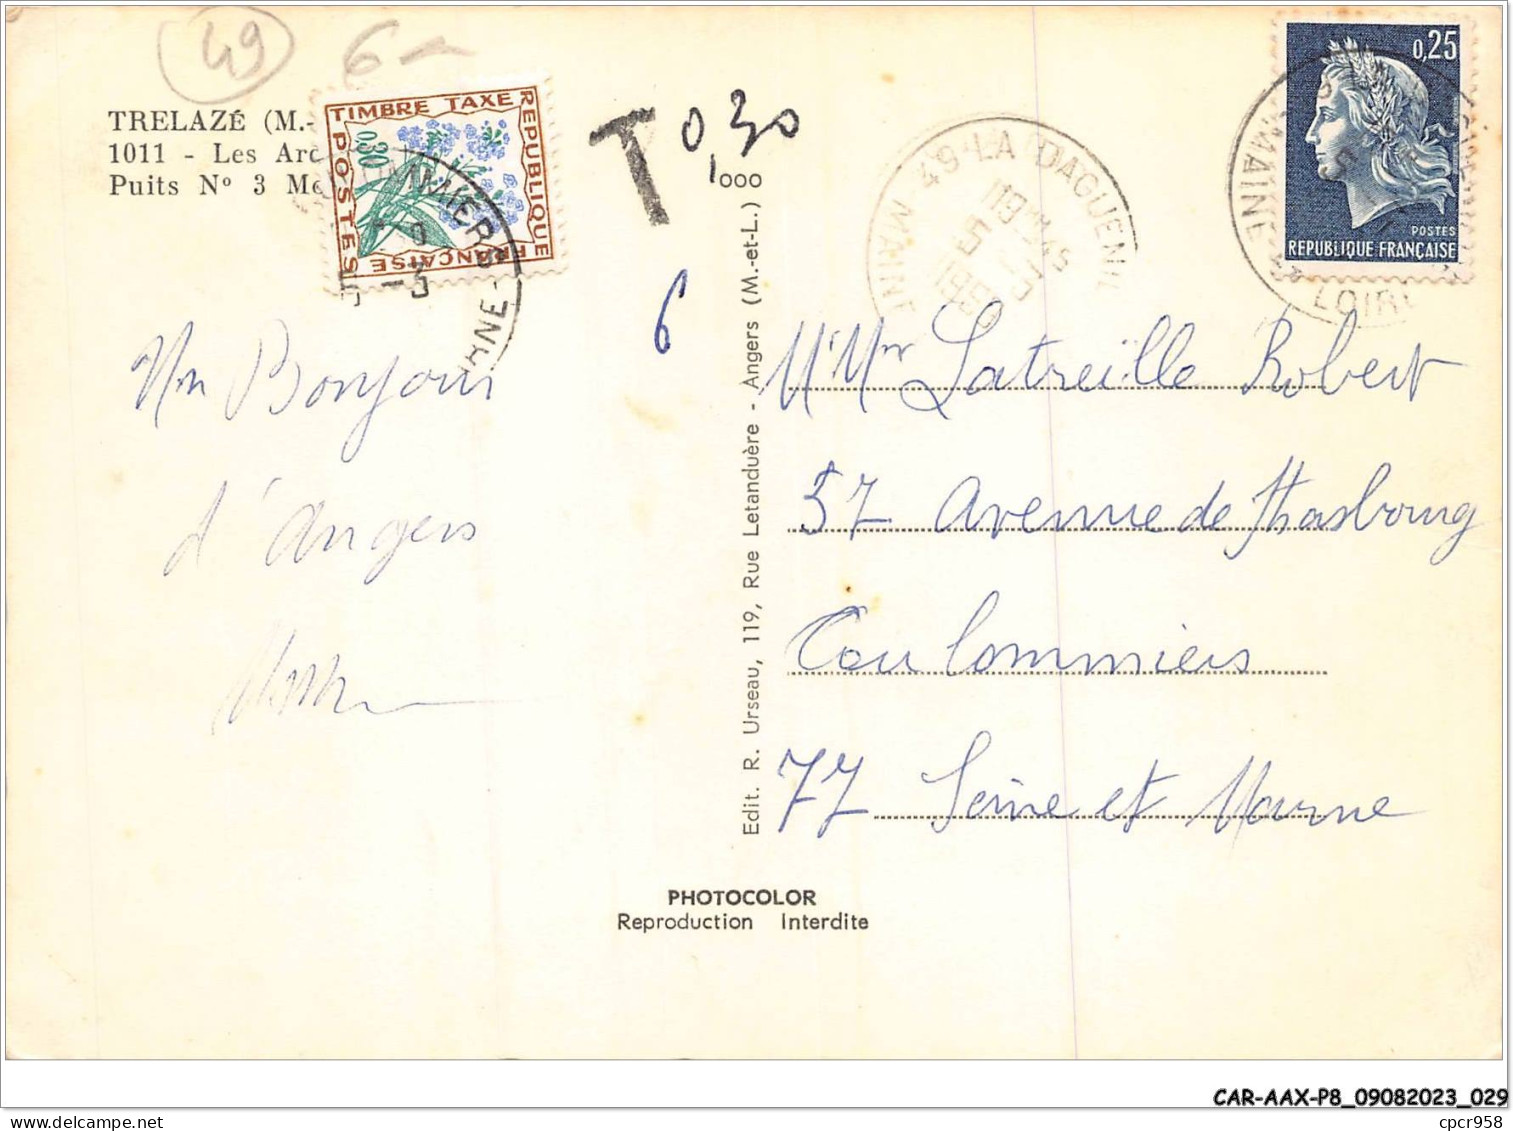 49
6 -
TRELAZÉ (M.-
1011 - Les Ard
Puits Nº 3 Me
TIMBRE TAXE
REPUBLIQUE
FRANÇAISE
POSTES
0,30
T 0,30
1000
6
49 LA DAGUENI
MAINE
0,25
POSTES
REPUBLIQUE FRANÇAISE
MAINE
LOIRE
Un Bonjour
d'Angers
Mr Mme Latreille Robert
57 Avenue de Strasbourg
Coulommiers
77 Seine et Marne
Edit. R. Urseau, 119, Rue Letanduère - Angers (M.-et-L.)
PHOTOCOLOR
Reproduction Interdite
CAR-AAX-P8_09082023_029
cpcr958